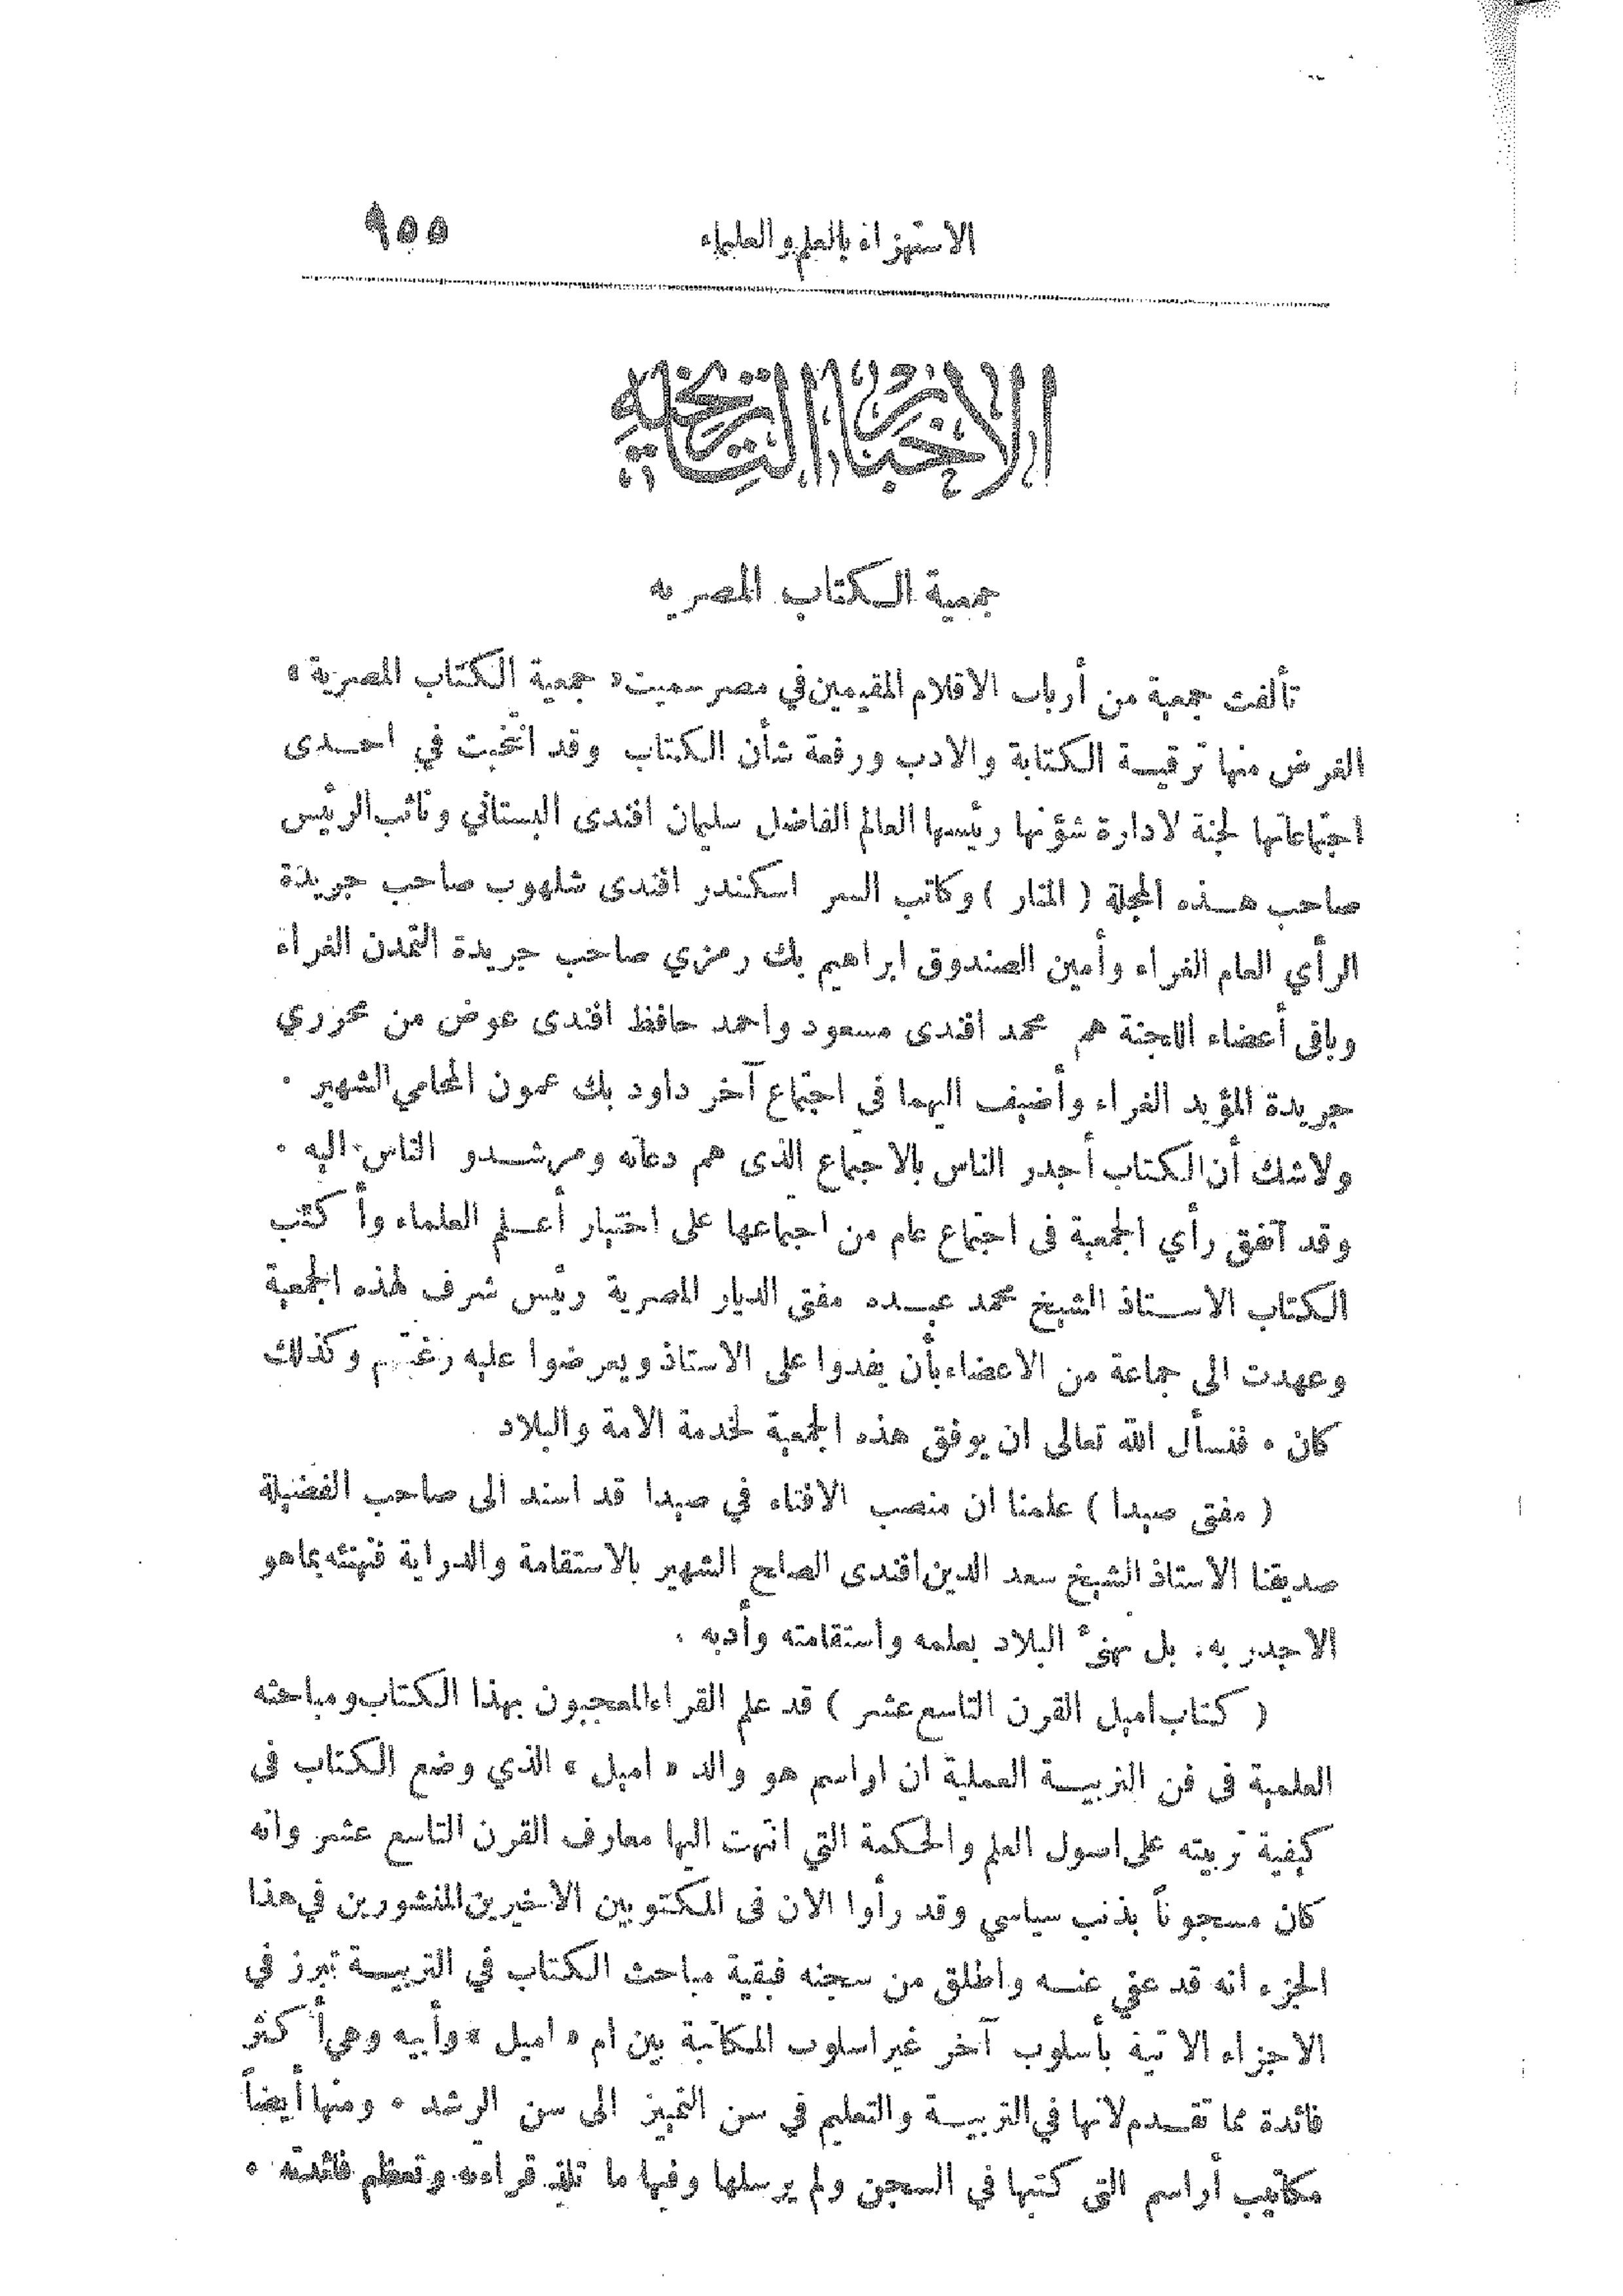 الاستهزاء بالعلم والعلماء ٩٥٥
الاخبار التاريخية
جمعية الكتاب المصريه
تألفت جمعية من أرباب الاقلام المقيمين في مصر سميت « جمعية الكتاب المصرية »
الغرض منها ترقيـة الكتابة والادب ورفعة شأن الكتاب وقد انتخبت في احـدى
اجتماعاتها لجنة لادارة شؤنها رئيسها العالم الفاضل سليمان افندى البستاني ونائب الرئيس
صاحب هـذه المجلة ( المنار ) وكاتب السر اسكندر افندى شلهوب صاحب جريدة
الرأي العام الغراء وأمين الصندوق ابراهيم بك رمزي صاحب جريدة التمدن الغراء
وباقى أعضاء اللجنة هم محمد افندى مسعود واحمد حافظ افندى عوض من محرري
جريدة المؤيد الغراء وأضيف اليهما فى اجتماع آخر داود بك عمون المحامي الشهير .
ولاشك أن الكتاب أجدر الناس بالاجتماع الذى هم دعاته ومرشـدو الناس اليه .
وقد آتفق رأي الجمعية فى اجتماع عام من اجتماعها على اختيار أعـلم العلماء وأكتب
الكتاب الاسـتاذ الشيخ محمد عبـده مفتى الديار المصرية رئيس شرف لهذه الجمعية
وعهدت الى جماعة من الاعضاء بأن يفدوا على الاستاذ ويعرضوا عليه رغبتهم وكذلك
كان . فنسأل الله تعالى ان يوفق هذه الجمعية لخدمة الامة والبلاد
( مفتى صيدا ) علمنا ان منصب الافتاء في صيدا قد اسند الى صاحب الفضيلة
صديقنا الاستاذ الشيخ سعد الدين افندى الصلح الشهير بالاستقامة والدراية فنهنئه بما هو
الاجدر به . بل نهنئ البلاد بعلمه واستقامته وأدبه .
( كتاب اميل القرن التاسع عشر ) قد علم القراء المعجبون بهذا الكتاب ومباحثه
العلمية فى فن التربيـة العملية ان اراسم هو والد « اميل » الذي وضع الكتاب فى
كيفية تربيته على اسول العلم والحكمة التي انتهت اليها معارف القرن التاسع عشر وانه
كان مسجوناً بذنب سياسي وقد رأوا الان فى المكتوبين الاخيرين المنشورين في هذا
الجزء انه قد عفي عنـه واطلق من سجنه فبقية مباحث الكتاب في التربيـة تبرز في
الاجزاء الاتية بأسلوب آخر غير اسلوب المكاتبة بين ام « اميل » وأبيه وهي أكثر
فائدة مما تقـدم لانها في التربيـة والتعليم في سن التمييز الى سن الرشد . ومنها أيضاً
مكاتيب أراسم التى كتبها في السجن ولم يرسلها وفيها ما تلذ قراءته وتعظم فائدته .